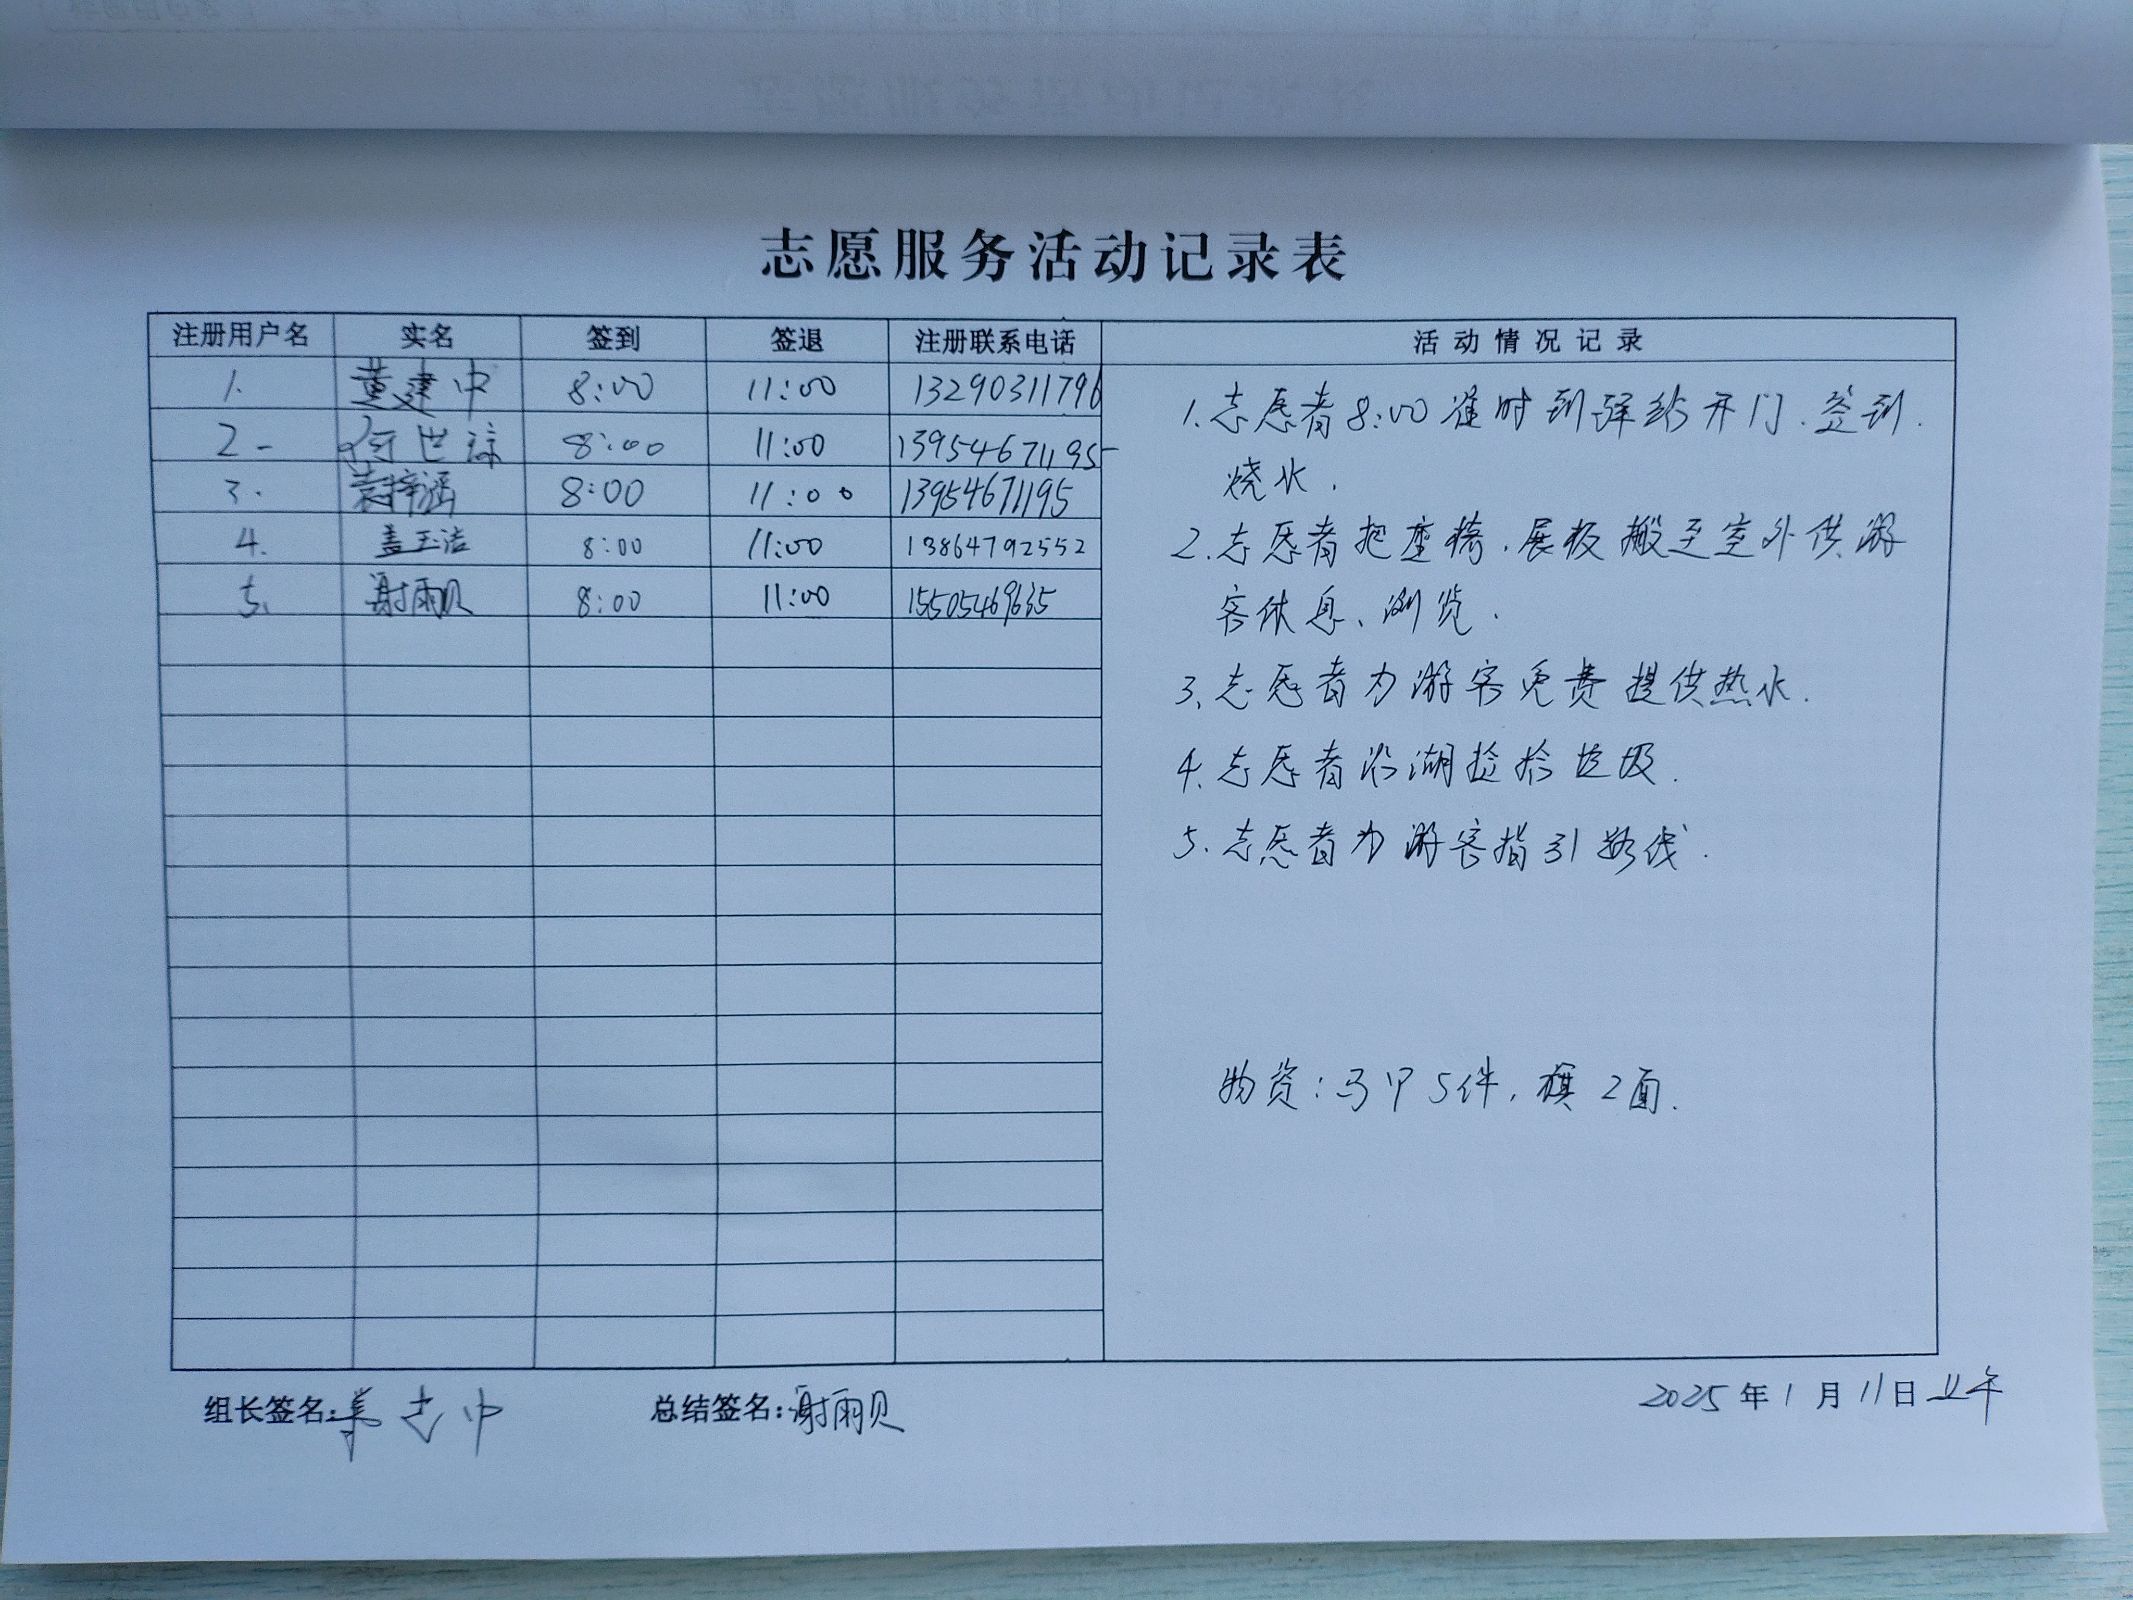 志愿服务活动记录表
注册用户名 实名 签到 签退 注册联系电话 活动情况记录
1. 黄建中 8:00 11:00 13290311796
2. 世 8:00 11:00 13954671195
3. 袁梓涵 8:00 11:00 13954671195
4. 盖玉洁 8:00 11:00 13864792552
5. 谢雨贝 8:00 11:00 15505469635
1.志愿者8:00准时到驿站开门.签到.
烧水.
2.志愿者把座椅.展板搬至室外供游
客休息、浏览.
3.志愿者为游客免费提供热水.
4.志愿者沿湖捡拾垃圾.
5.志愿者为游客指引路线.
物资:马甲5件,旗2面.
组长签名: 总结签名:谢雨贝 2025年1月11日上午